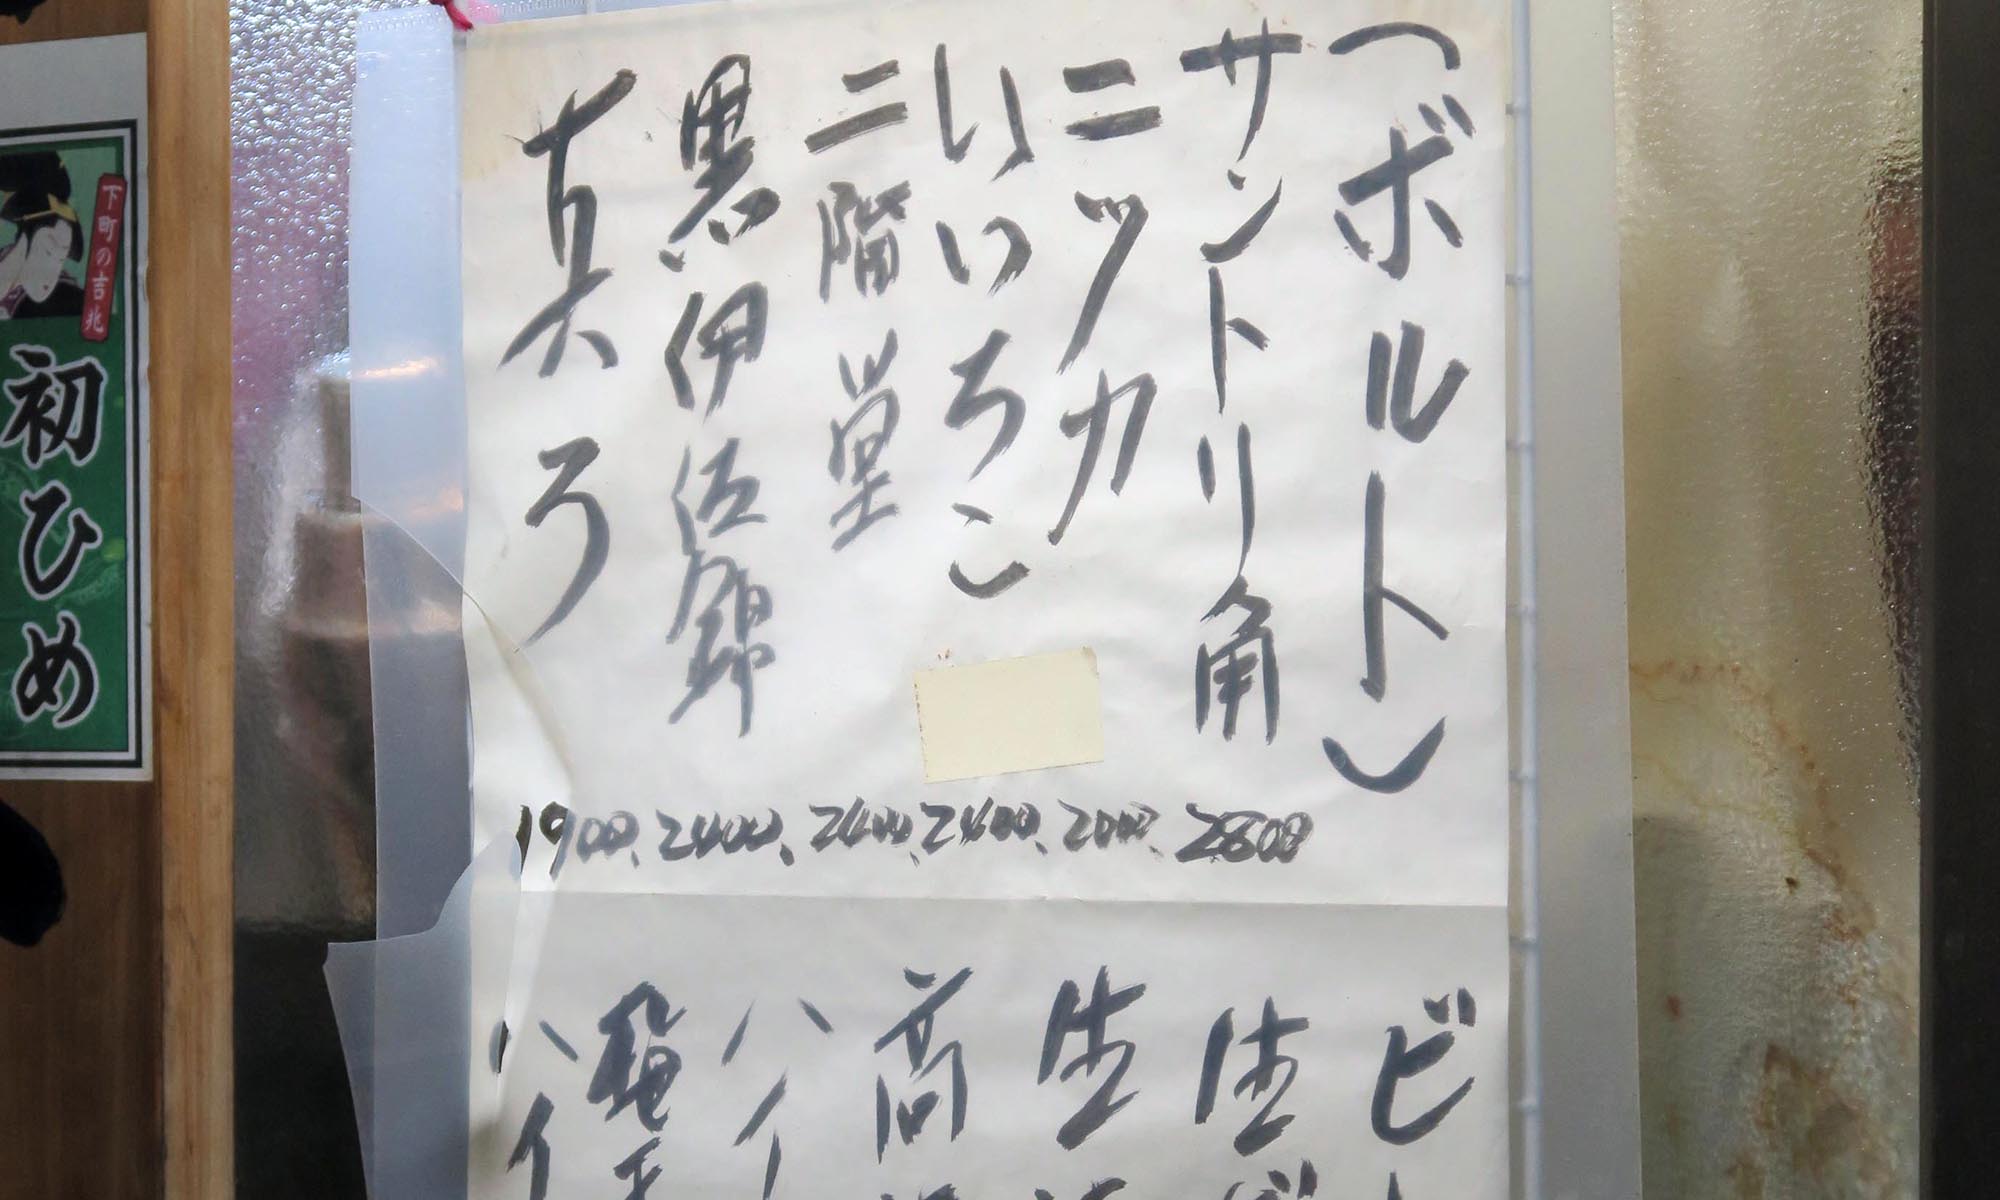 （ボルト）
サントリ角 2800
ニッカ 2000
いいちこ 2400
二階堂 2400
黒伊佐錦 2400
真ろ 1900
ビ
生ビ
生
高
ハイ
ハイ
下町の吉兆
初ひめ